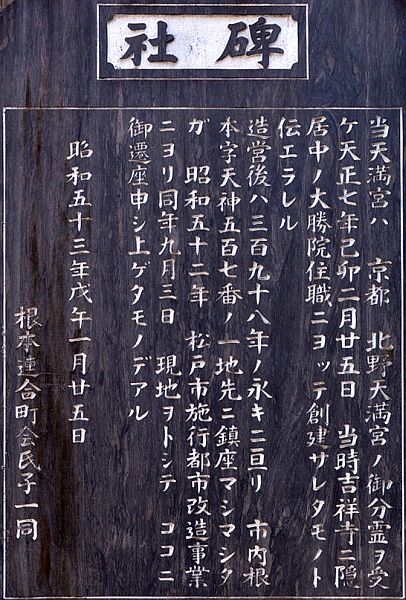 社碑
当天満宮ハ 京都 北野天満宮ノ御分霊ヲ受
ケ天正七年己卯二月廿五日 当時吉祥寺ニ隠
居中ノ大勝院住職ニヨッテ創建サレタモノト
伝エラレル
造営後ハ三百九十八年ノ永キニ亘リ 市内根
本字天神五百七番ノ一地先ニ鎮座マシマシタ
ガ 昭和五十二年 松戸市施行都市改造事業
ニヨリ同年九月三日 現地ヲトシテ ココニ
御遷座申シ上ゲタモノデアル
昭和五十三年戊午一月廿五日
根本連合町会氏子一同